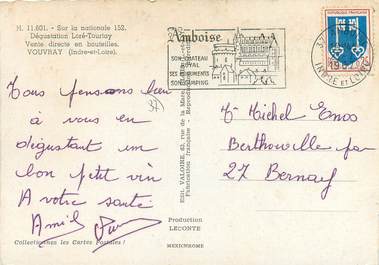 H. 11.601. - Sur la nationale 152.
Dégustation Loré-Tourtay
Vente directe en bouteilles.
VOUVRAY (Indre-et-Loire).
Amboise
SON CHATEAU
ROYAL
SES MONUMENTS
SON CAMPING
REPUBLIQUE FRANÇAISE
37
INDRE ET LOIRE
Tous pensons bien
à vous en
dégustant un
bon petit vin
A votre santé
37
Edit. VALOIRE, 83, rue de la
Fabrication française - Reproduction
Mr Michel Enos
Berthouville par
27 Bernay
Production
LECONTE
Collectionnez les Cartes Postales !
MEXICHROME